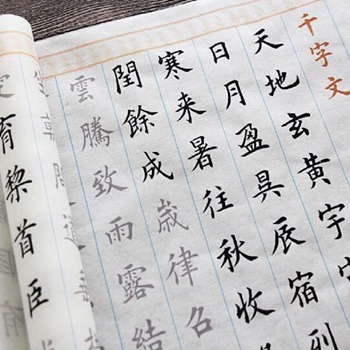 千字文
天地玄黃宇宙
日月盈昃辰宿列
寒来暑往秋收
閏餘成歲律召
雲騰致雨露結
育黎首臣